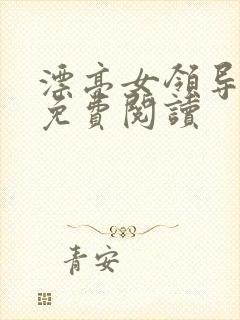 漂亮女領导
免費閱讀
青安